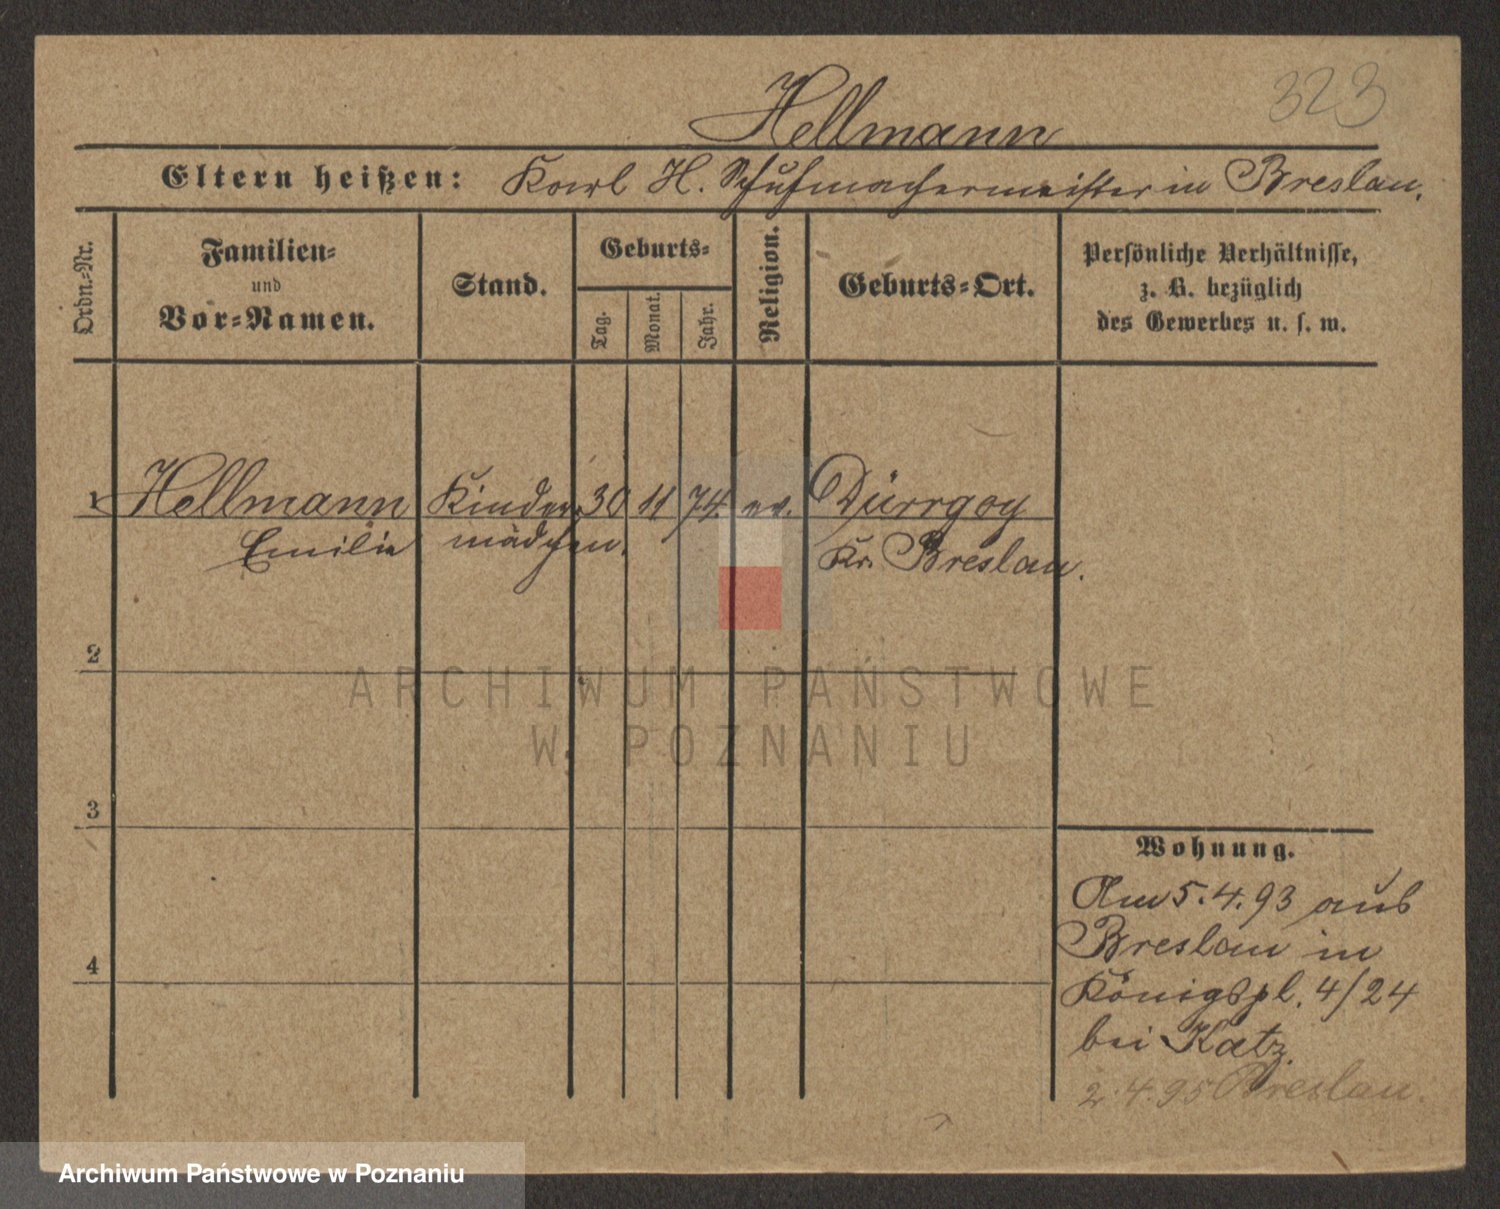 323
Hellmann
Eltern heißen: Karl H. Schuhmachermeister in Breslau.
Ordn.-Nr.
Familien-
und
Vor-Namen.
Stand.
Geburts-
Tag.
Monat.
Jahr.
Religion.
Geburts-Ort.
Persönliche Verhältnisse,
z. B. bezüglich
des Gewerbes u. s. w.
1 Hellmann Kinder- 30 11 74 ev. Dürrgoy
Emilie mädchen. Kr. Breslau.
2
ARCHIWUM PAŃSTWOWE
W POZNANIU
3
Wohnung.
Am 5.4.93 aus
Breslau in
4
Königspl. 4/24
bei Katz.
2.4.95 Breslau.
Archiwum Państwowe w Poznaniu